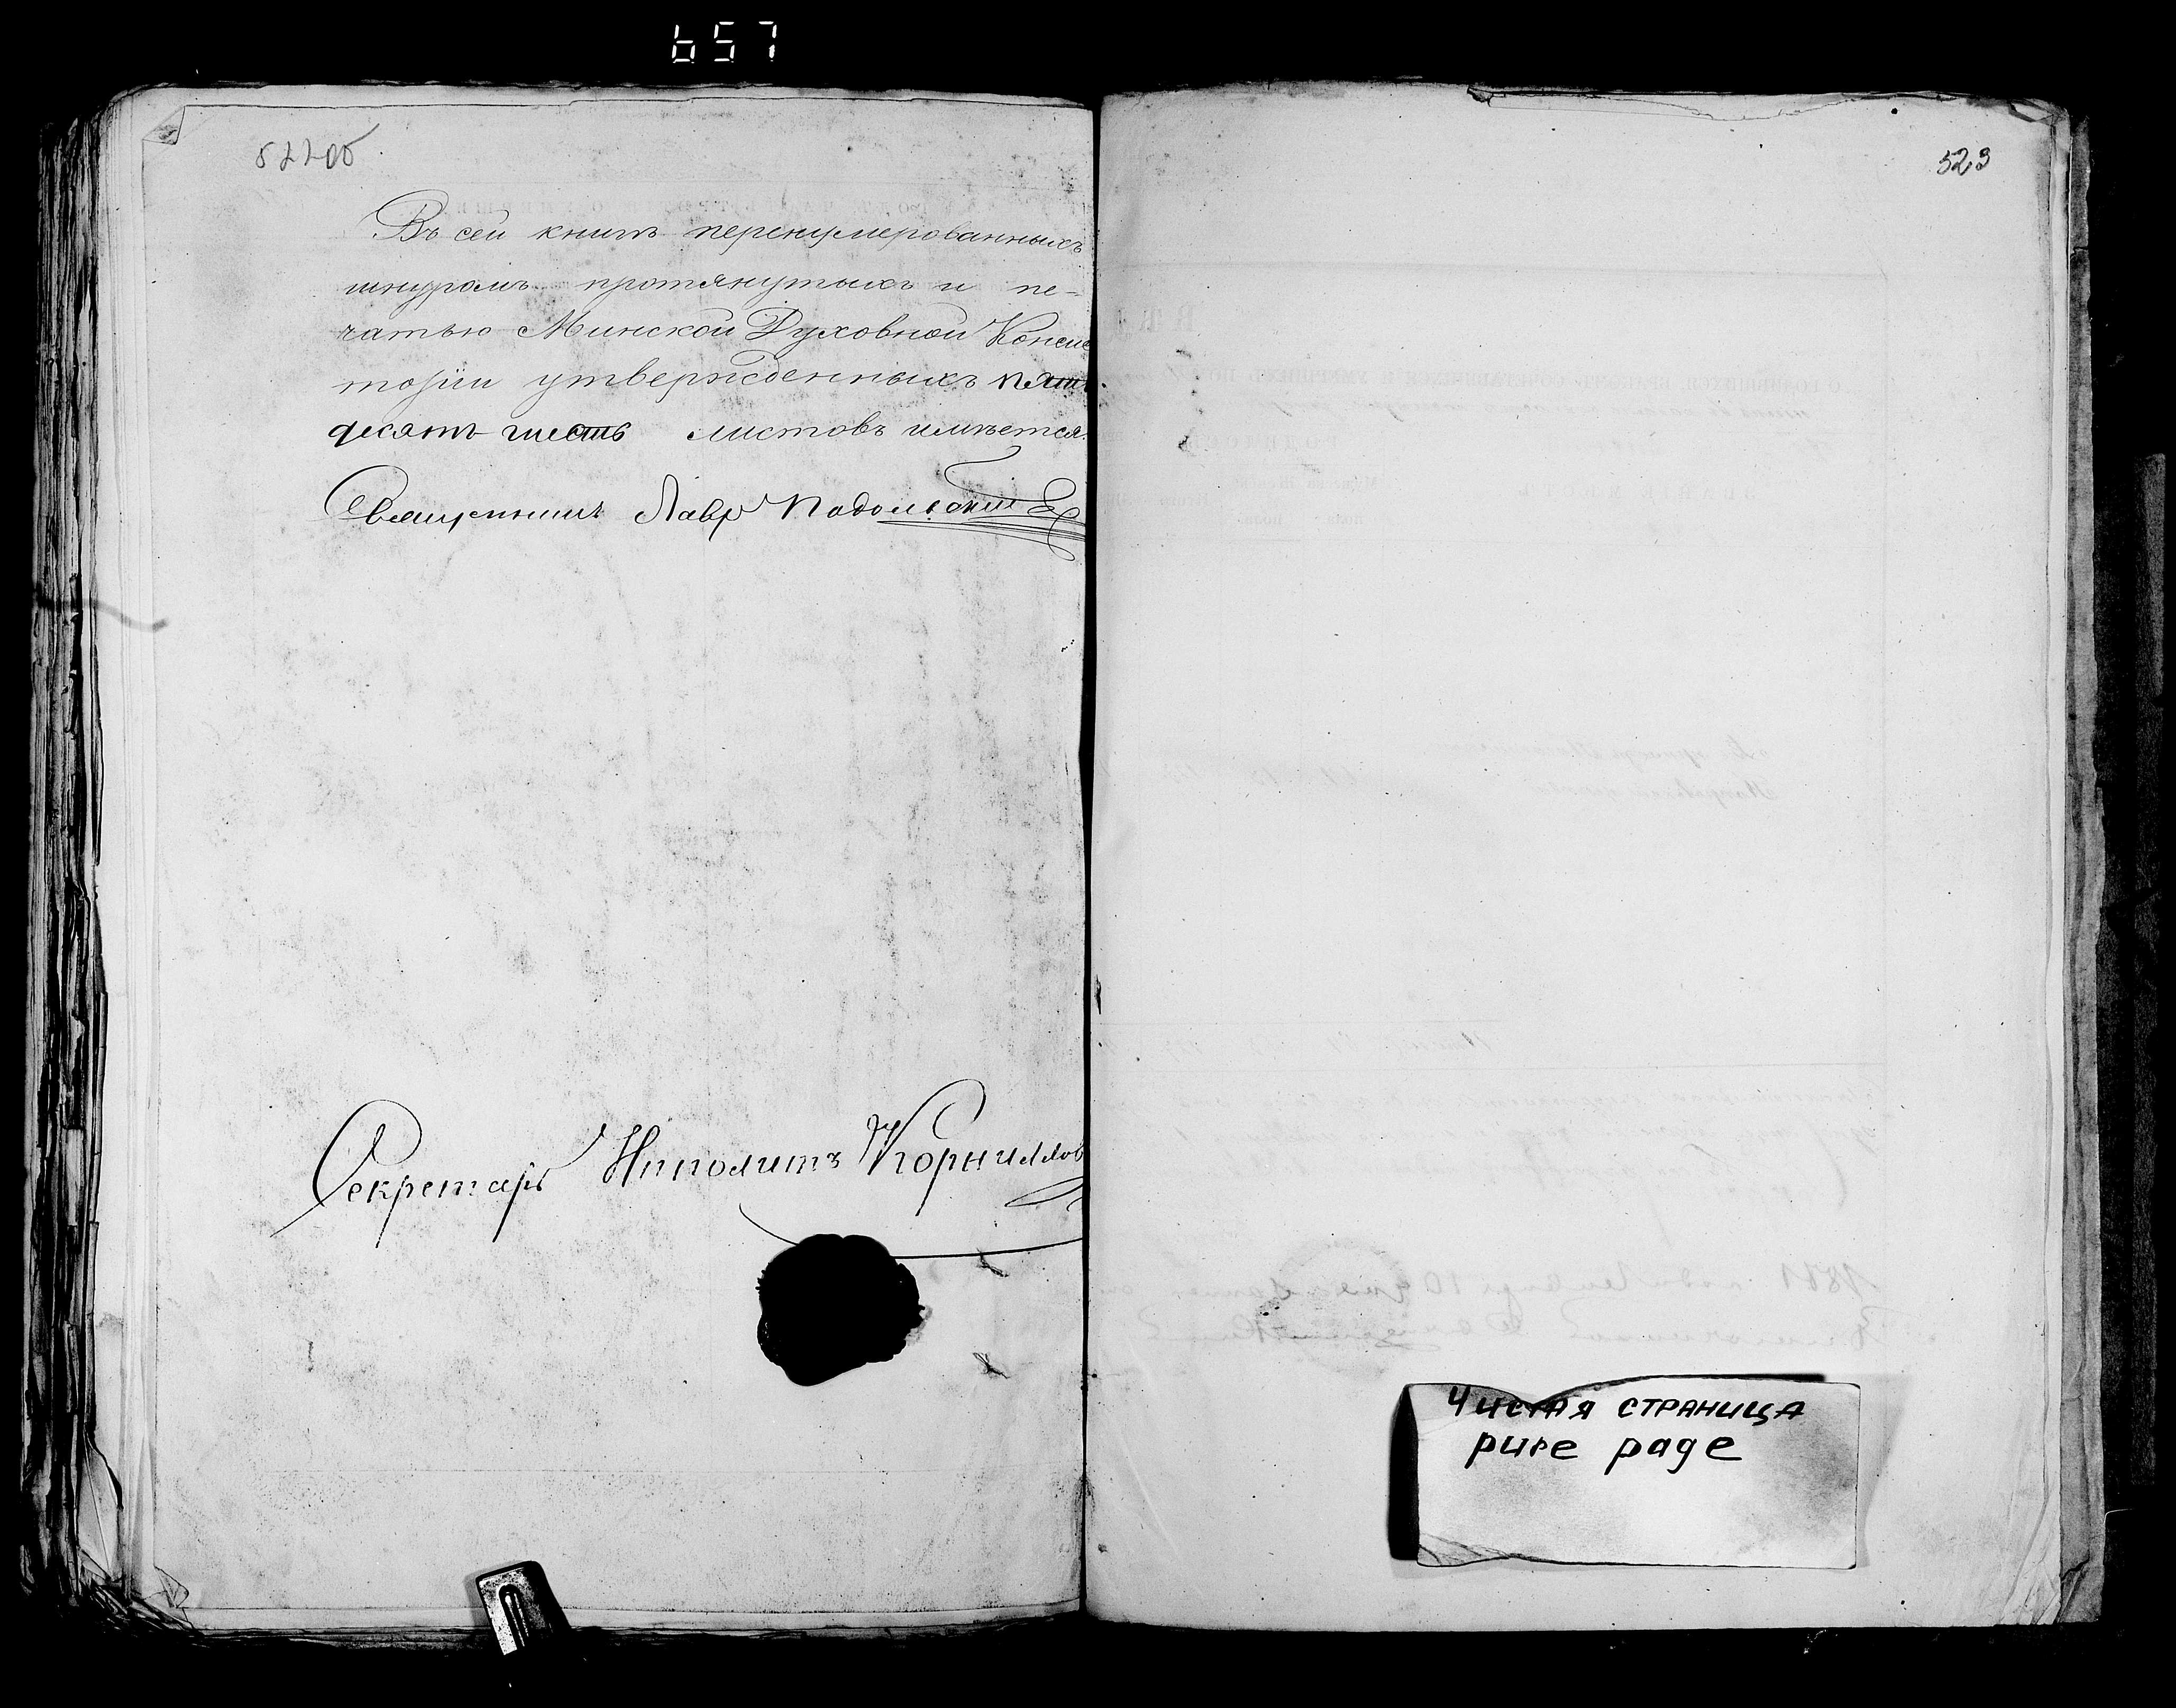 657
522об
Въ сей книгѣ перенумерованныхъ
шнуромъ протянутыхъ и пе-
чатью Минской Духовной Консис
торіи утвержденныхъ пять
десятъ шесть листовъ имѣется.
Священникъ Лавръ Подольскій
Секретарь Ипполитъ Корниллов
523
Чистая страница
pure page